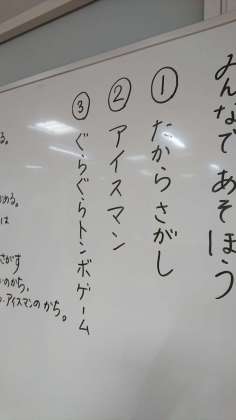 みんなであそぼう
①たからさがし
②アイスマン
③ぐらぐらトンボゲーム
る。
める。
は
さがす
のかち。
アイスマンのかち。